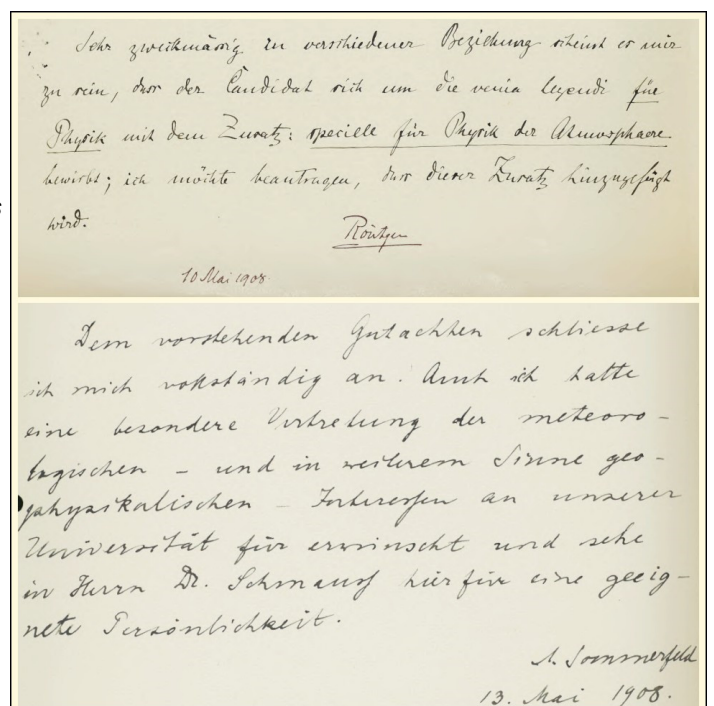 Sehr zweckmässig in verschiedener Beziehung scheint es mir
zu sein, dass der Candidat sich um die venia legendi für
Physik mit dem Zusatz: specielle für Physik der Atmosphaere
bewirbt; ich möchte beantragen, dass dieser Zusatz hinzugefügt
wird.
Röntgen
10 Mai 1908.
Dem vorstehenden Gutachten schliesse
ich mich vollständig an. Auch ich halte
eine besondere Vertretung der meteoro-
logischen – und in weiterem Sinne geo-
physikalischen – Interessen an unserer
Universität für erwünscht und sehe
in Herrn Dr. Schmauss hierfür eine geeig-
nete Persönlichkeit.
A. Sommerfeld
13. Mai 1908.